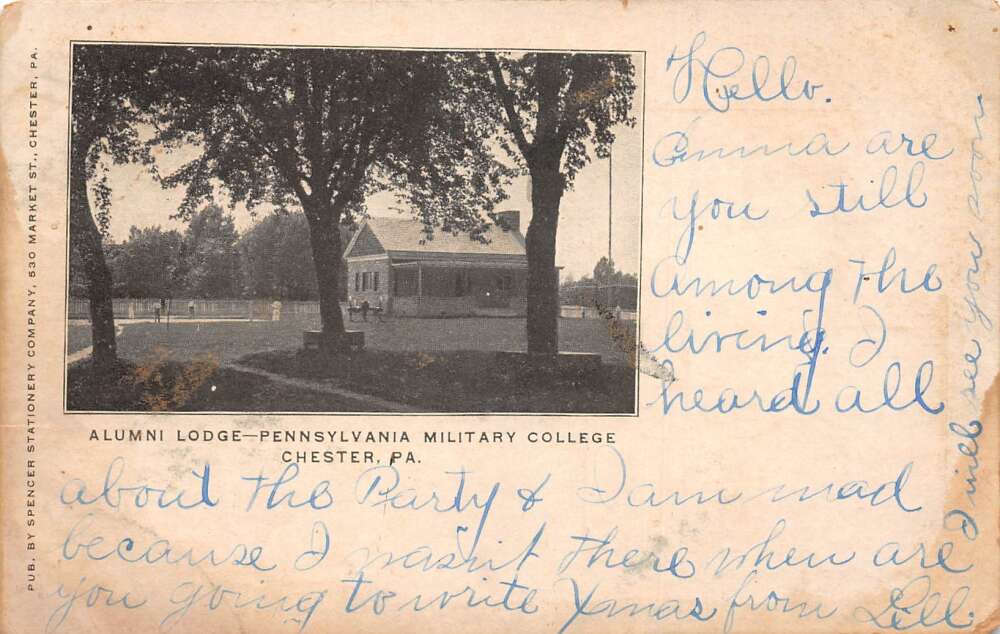 PUB. BY SPENCER STATIONERY COMPANY, 530 MARKET ST., CHESTER, PA.
ALUMNI LODGE—PENNSYLVANIA MILITARY COLLEGE
CHESTER, PA.
Hello.
Emma are
you still
among the
living. I
heard all
about the Party & I am mad
because I wasn't there when are
you going to write Xmas from Lill
I will see you soon